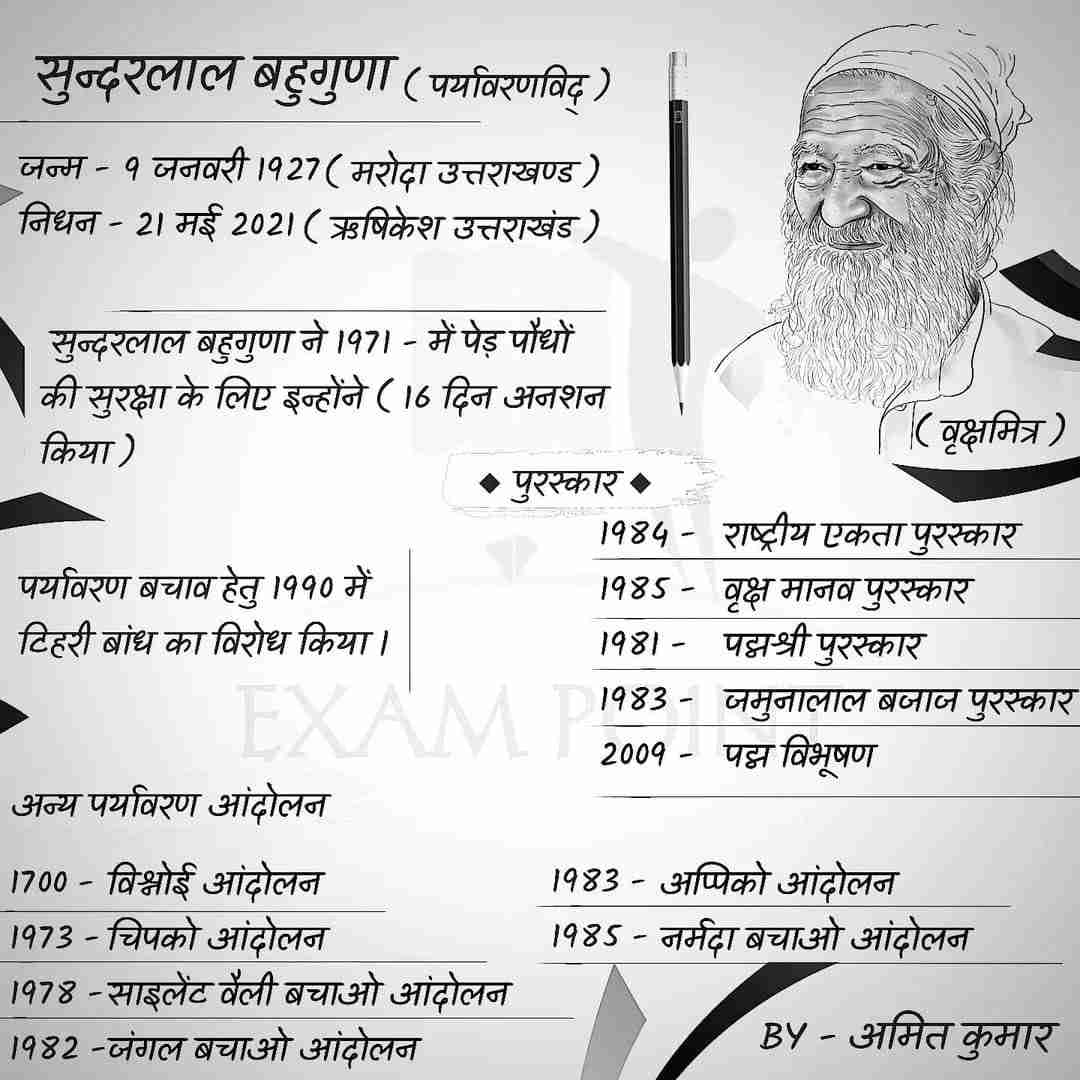 सुन्दरलाल बहुगुणा ( पर्यावरणविद् )
जन्म - 9 जनवरी 1927 ( मरोदा उत्तराखण्ड )
निधन - 21 मई 2021 ( ऋषिकेश उत्तराखंड )
सुन्दरलाल बहुगुणा ने 1971 - में पेड़ पौधों
की सुरक्षा के लिए इन्होंने ( 16 दिन अनशन
किया )
( वृक्षमित्र )
◆ पुरस्कार ◆
1984 - राष्ट्रीय एकता पुरस्कार
1985 - वृक्ष मानव पुरस्कार
1981 - पद्मश्री पुरस्कार
1983 - जमुनालाल बजाज पुरस्कार
2009 - पद्म विभूषण
पर्यावरण बचाव हेतु 1990 में
टिहरी बांध का विरोध किया ।
EXAM POINT
अन्य पर्यावरण आंदोलन
1700 - विश्नोई आंदोलन
1973 - चिपको आंदोलन
1978 - साइलेंट वैली बचाओ आंदोलन
1982 - जंगल बचाओ आंदोलन
1983 - अप्पिको आंदोलन
1985 - नर्मदा बचाओ आंदोलन
BY - अमित कुमार